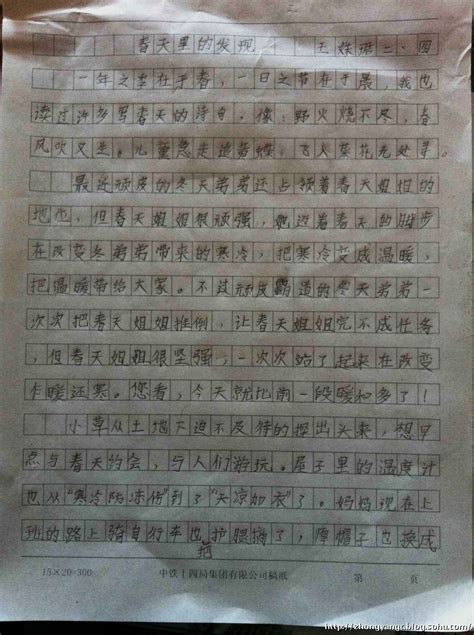 春天里的发现 王姝 二、四
一年之季在于春，一日之节在于晨，我也
读过许多写春天的诗句。像：野火烧不尽，春
风吹又生。儿童急走追黄蝶，飞入菜花无处寻。
最近顽皮的冬天弟弟还占领着春天姐姐的
地也，但春天姐姐很顽强，她迈着春天的脚步
在改变冬弟弟带来的寒冷，把寒冷变成温暖，
把温暖带给大家。不过顽皮霸道的冬天弟弟一
次次把春天姐姐推倒，让春天姐姐完不成任务
，但春天姐姐很坚强，一次次站了起来在改变
乍暖还寒。您看，今天就比前一段暖和多了！
小草从土地下迫不及待的探出头来，想早
点与春天约会，与人们游玩。屋子里的温度计
也从“寒冷防冻伤”到了“天凉加衣”了。妈妈现在上
班的路上骑自行车也把护腿摘了，厚帽子也换成
15×20=300 中铁十四局集团有限公司稿纸 第 页
http://zhongyangt.blog.sohu.com/